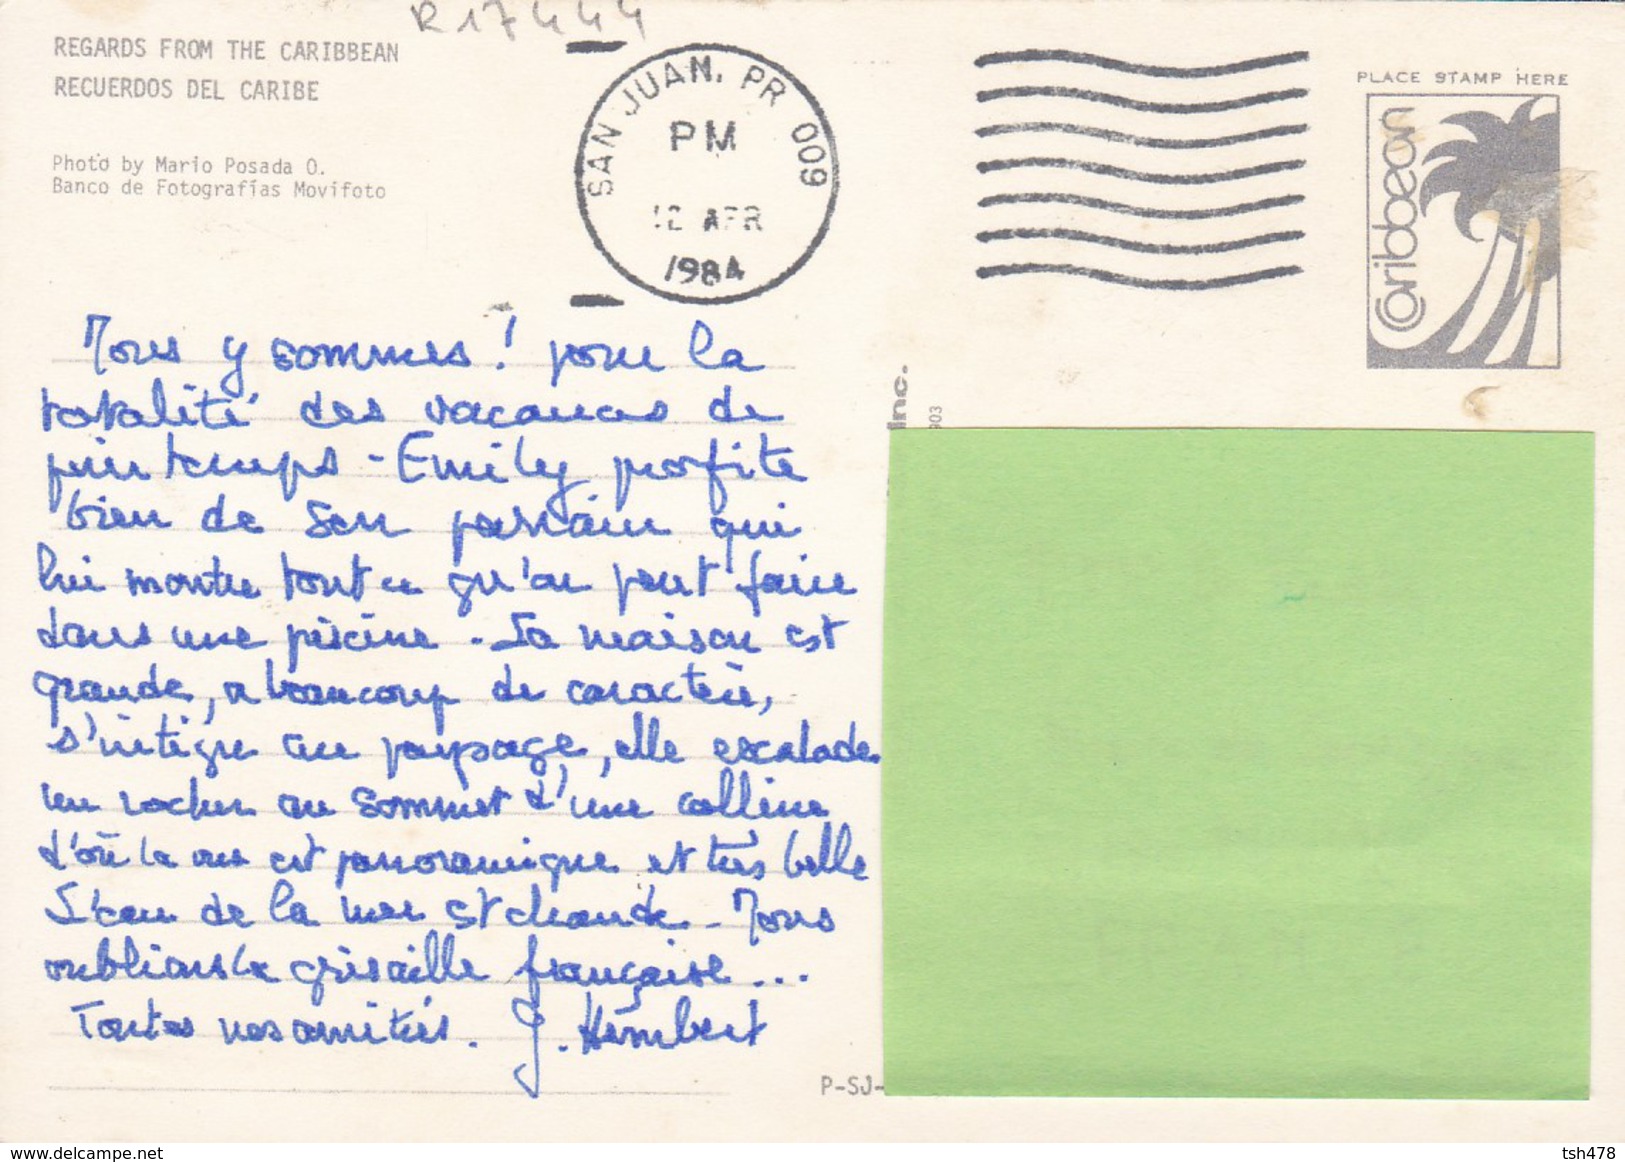 R17444
REGARDS FROM THE CARIBBEAN
RECUERDOS DEL CARIBE
Photo by Mario Posada O.
Banco de Fotografías Movifoto
SAN JUAN, PR 009
PM
12 APR
1984
PLACE STAMP HERE
Caribbean
Nous y sommes ! pour la
totalité des vacances de
printemps - Emily profite
bien de son parrain qui
lui montre tout ce qu'on peut faire
dans une piscine - La maison est
grande, a beaucoup de caractère,
s'intègre au paysage, elle escalade
un rocher au sommet d'une colline
d'où la vue est panoramique et très belle
L'eau de la mer est chaude - Nous
oublions la grisaille française ...
Toutes nos amitiés. J. Humbert
Inc.
903
P-SJ-
www.delcampe.net
tsh478